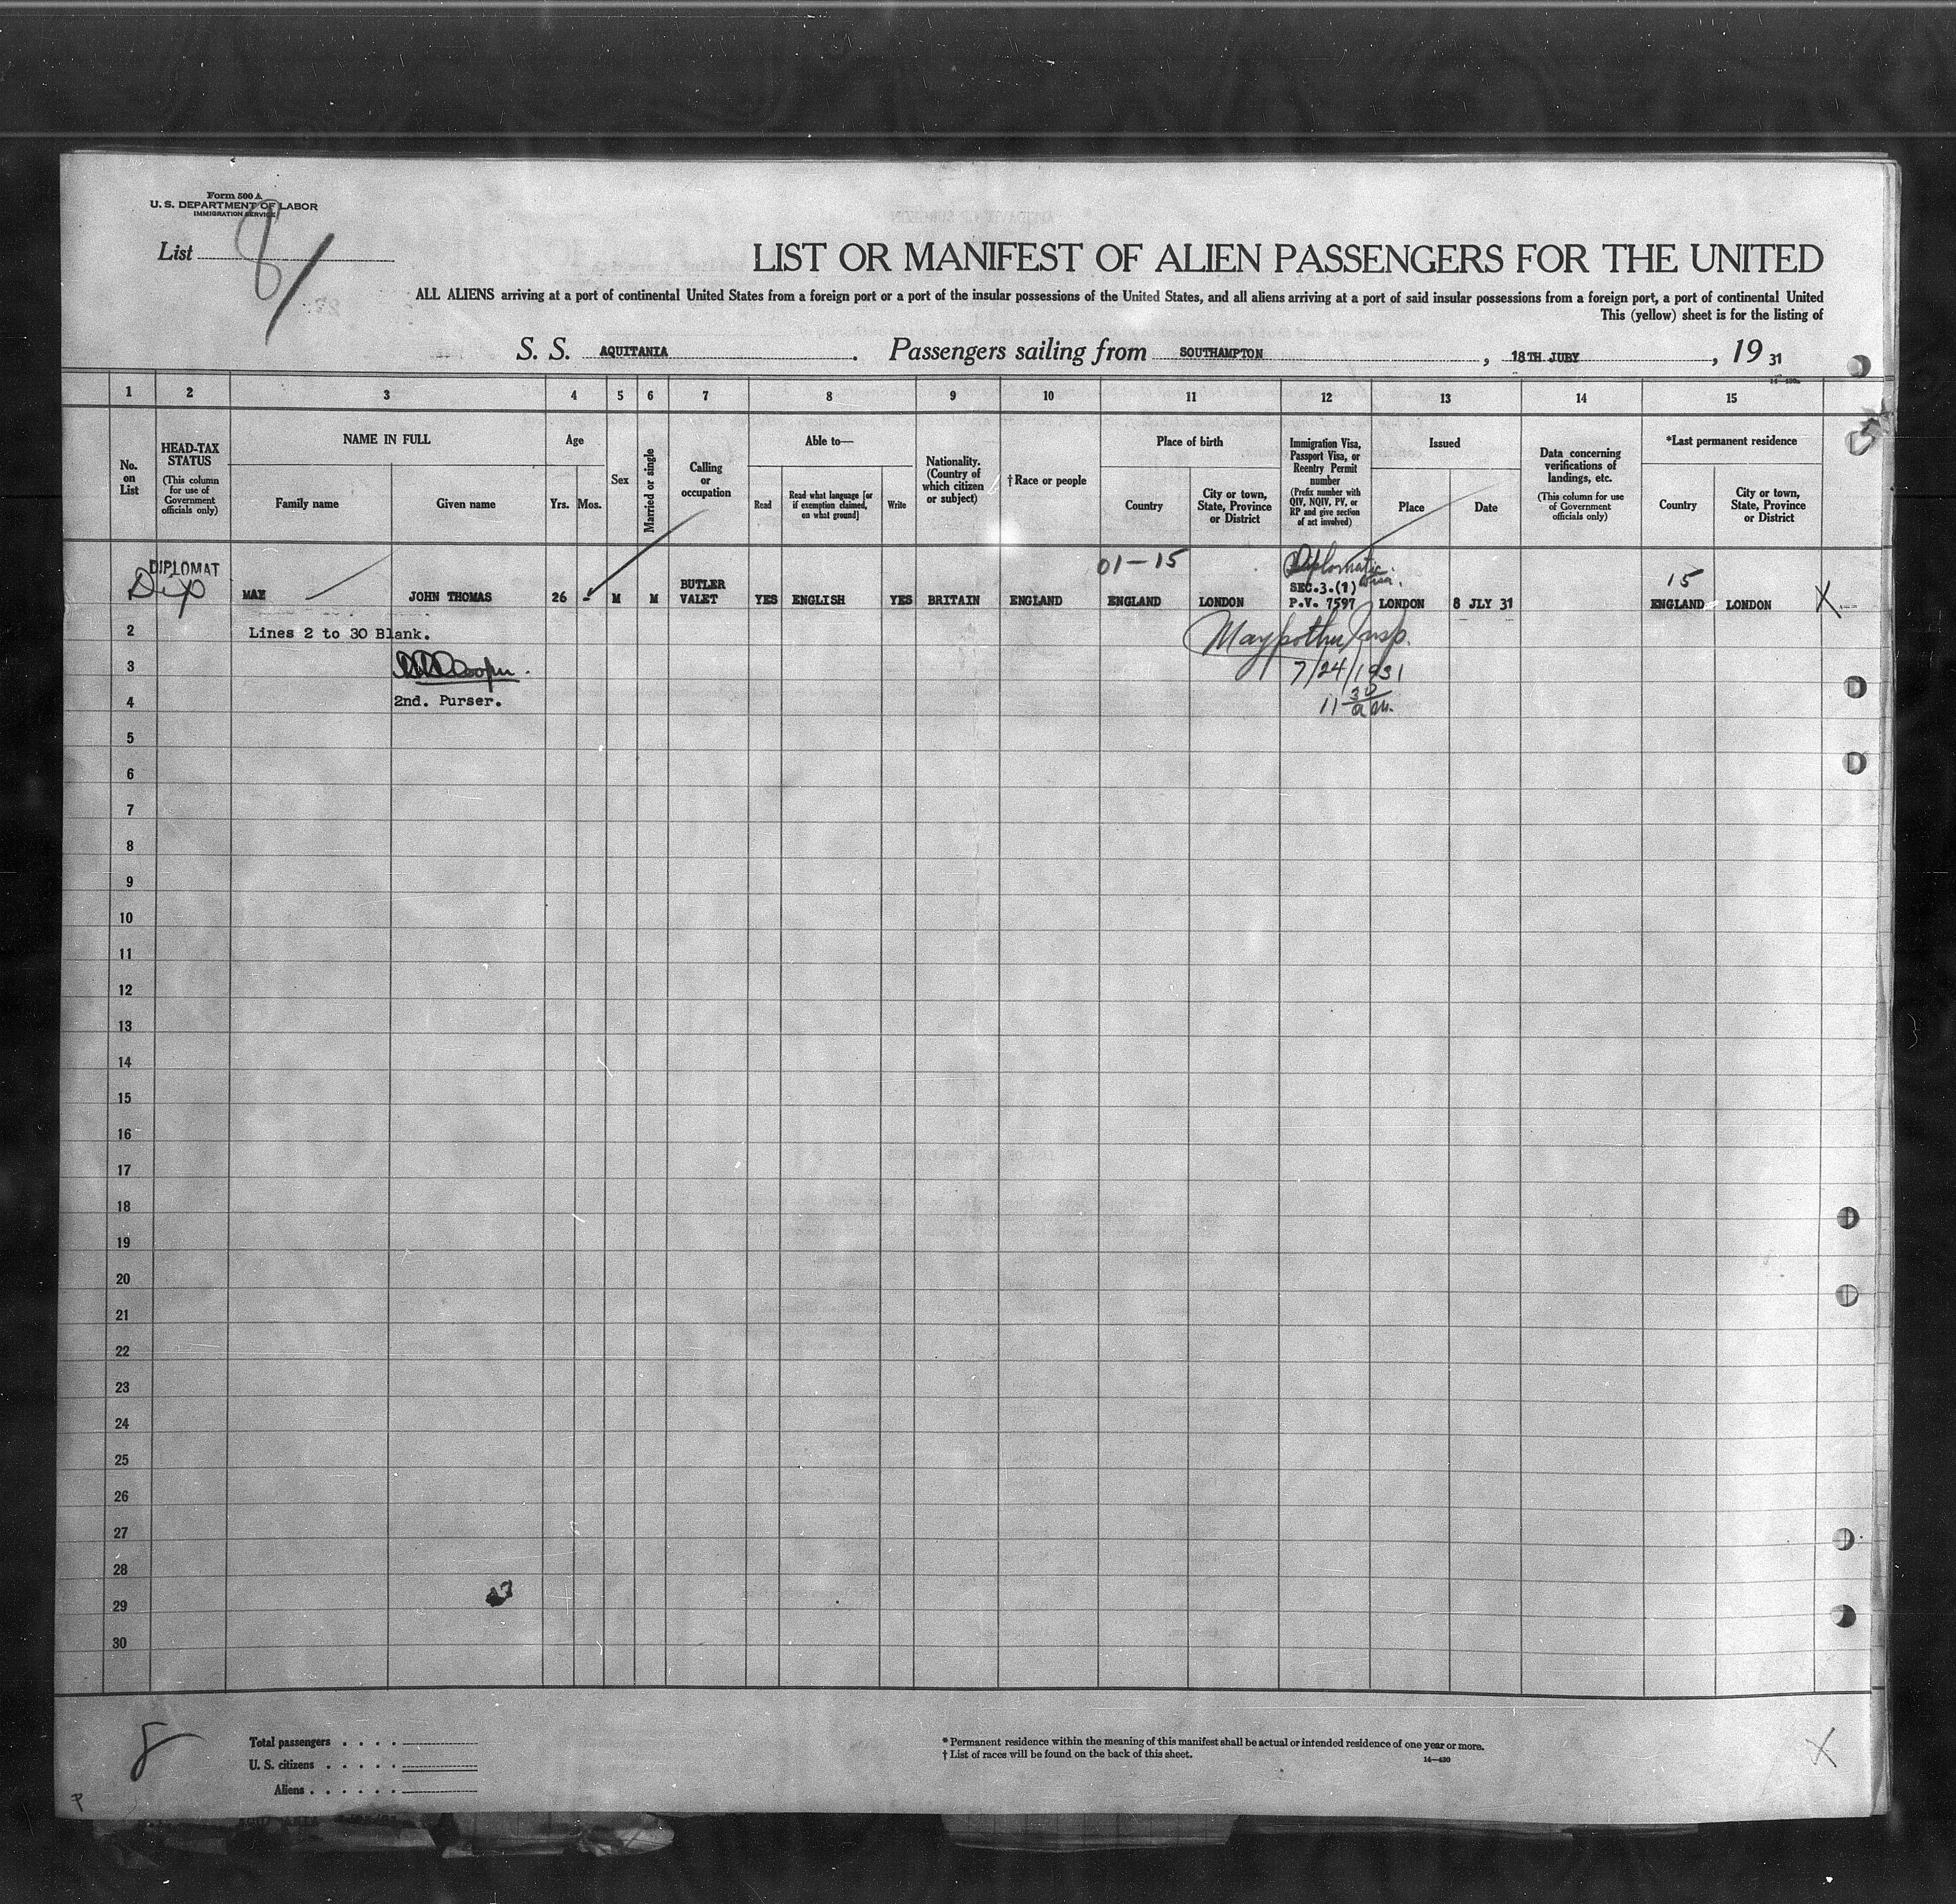 Form 500 A
U. S. DEPARTMENT OF LABOR
IMMIGRATION SERVICE
List 8
LIST OR MANIFEST OF ALIEN PASSENGERS FOR THE UNITED
ALL ALIENS arriving at a port of continental United States from a foreign port or a port of the insular possessions of the United States, and all aliens arriving at a port of said insular possessions from a foreign port, a port of continental United
This (yellow) sheet is for the listing of
S. S. AQUITANIA . Passengers sailing from SOUTHAMPTON , 18TH JUBY , 19 31
1 2 3 4 5 6 7 8 9 10 11 12 13 14 15
No. on List
HEAD-TAX STATUS (This column for use of Government officials only)
NAME IN FULL
Family name Given name
Age
Yrs. Mos.
Sex
Married or single
Calling or occupation
Able to—
Read
Read what language [or if exemption claimed, on what ground]
Write
Nationality. (Country of which citizen or subject)
†Race or people
Place of birth
Country
City or town, State, Province or District
Immigration Visa, Passport Visa, or Reentry Permit number (Prefix number with QIV, NQIV, PV, or RP and give section of act involved)
Issued
Place Date
Data concerning verifications of landings, etc. (This column for use of Government officials only)
*Last permanent residence
Country
City or town, State, Province or District
DIPLOMAT 01-15 Diplomatic
Dip BUTLER SEC.3.(1) visa. 15
MAY JOHN THOMAS 26 - M M VALET YES ENGLISH YES BRITAIN ENGLAND ENGLAND LONDON P.V. 7597 LONDON 8 JLY 31 ENGLAND LONDON X
2 Lines 2 to 30 Blank. Insp.
3 Cooper. 7/24/1931
4 2nd. Purser. 11 30 a.m.
5
6
7
8
9
10
11
12
13
14
15
16
17
18
19
20
21
22
23
24
25
26
27
28
29
30
8
Total passengers . . . .
U. S. citizens . . . . .
Aliens . . . . . .
* Permanent residence within the meaning of this manifest shall be actual or intended residence of one year or more.
† List of races will be found on the back of this sheet.
14—430
X